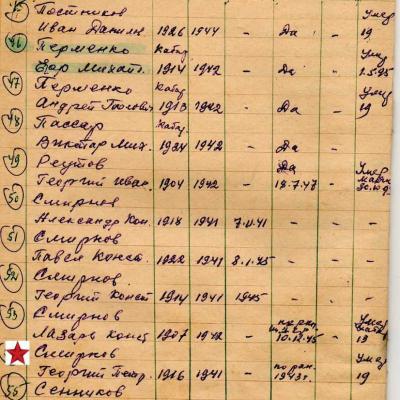 45 Постников Умер
Иван Данил. 1926 1944 - Да - 19
46 Перменко Катав. Умер
Егор Михайл. 1914 1942 - Да 2.5.95
47 Перменко Катав. Умер
Андрей 1913 1942 - Да - 19
48 Пассар Катав.
Виктор Мих. 1924 1942 - Да -
49 Реутов Да Умер
Георгий Иван. 1904 1942 - 18.7.47 -
50 Смирнов
Александр Кон. 1918 1941 7.11.41 - - -
51 Смирнов
Павел Конст. 1922 1941 8.1.45 - - -
52 Смирнов
Георгий Конст 1914 1941 1945 - - -
53 Смирнов по ран. Умер
Лазарь Конст 1907 1942 - 10.12.45 - 19
Смирнов по ран. Умер
Георгий Петр. 1916 1941 - 1943г. 19
55 Сенников